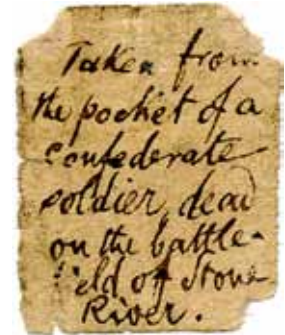 Taken from
the pocket of a
confederate
soldier, dead
on the battle-
field of Stone
River.